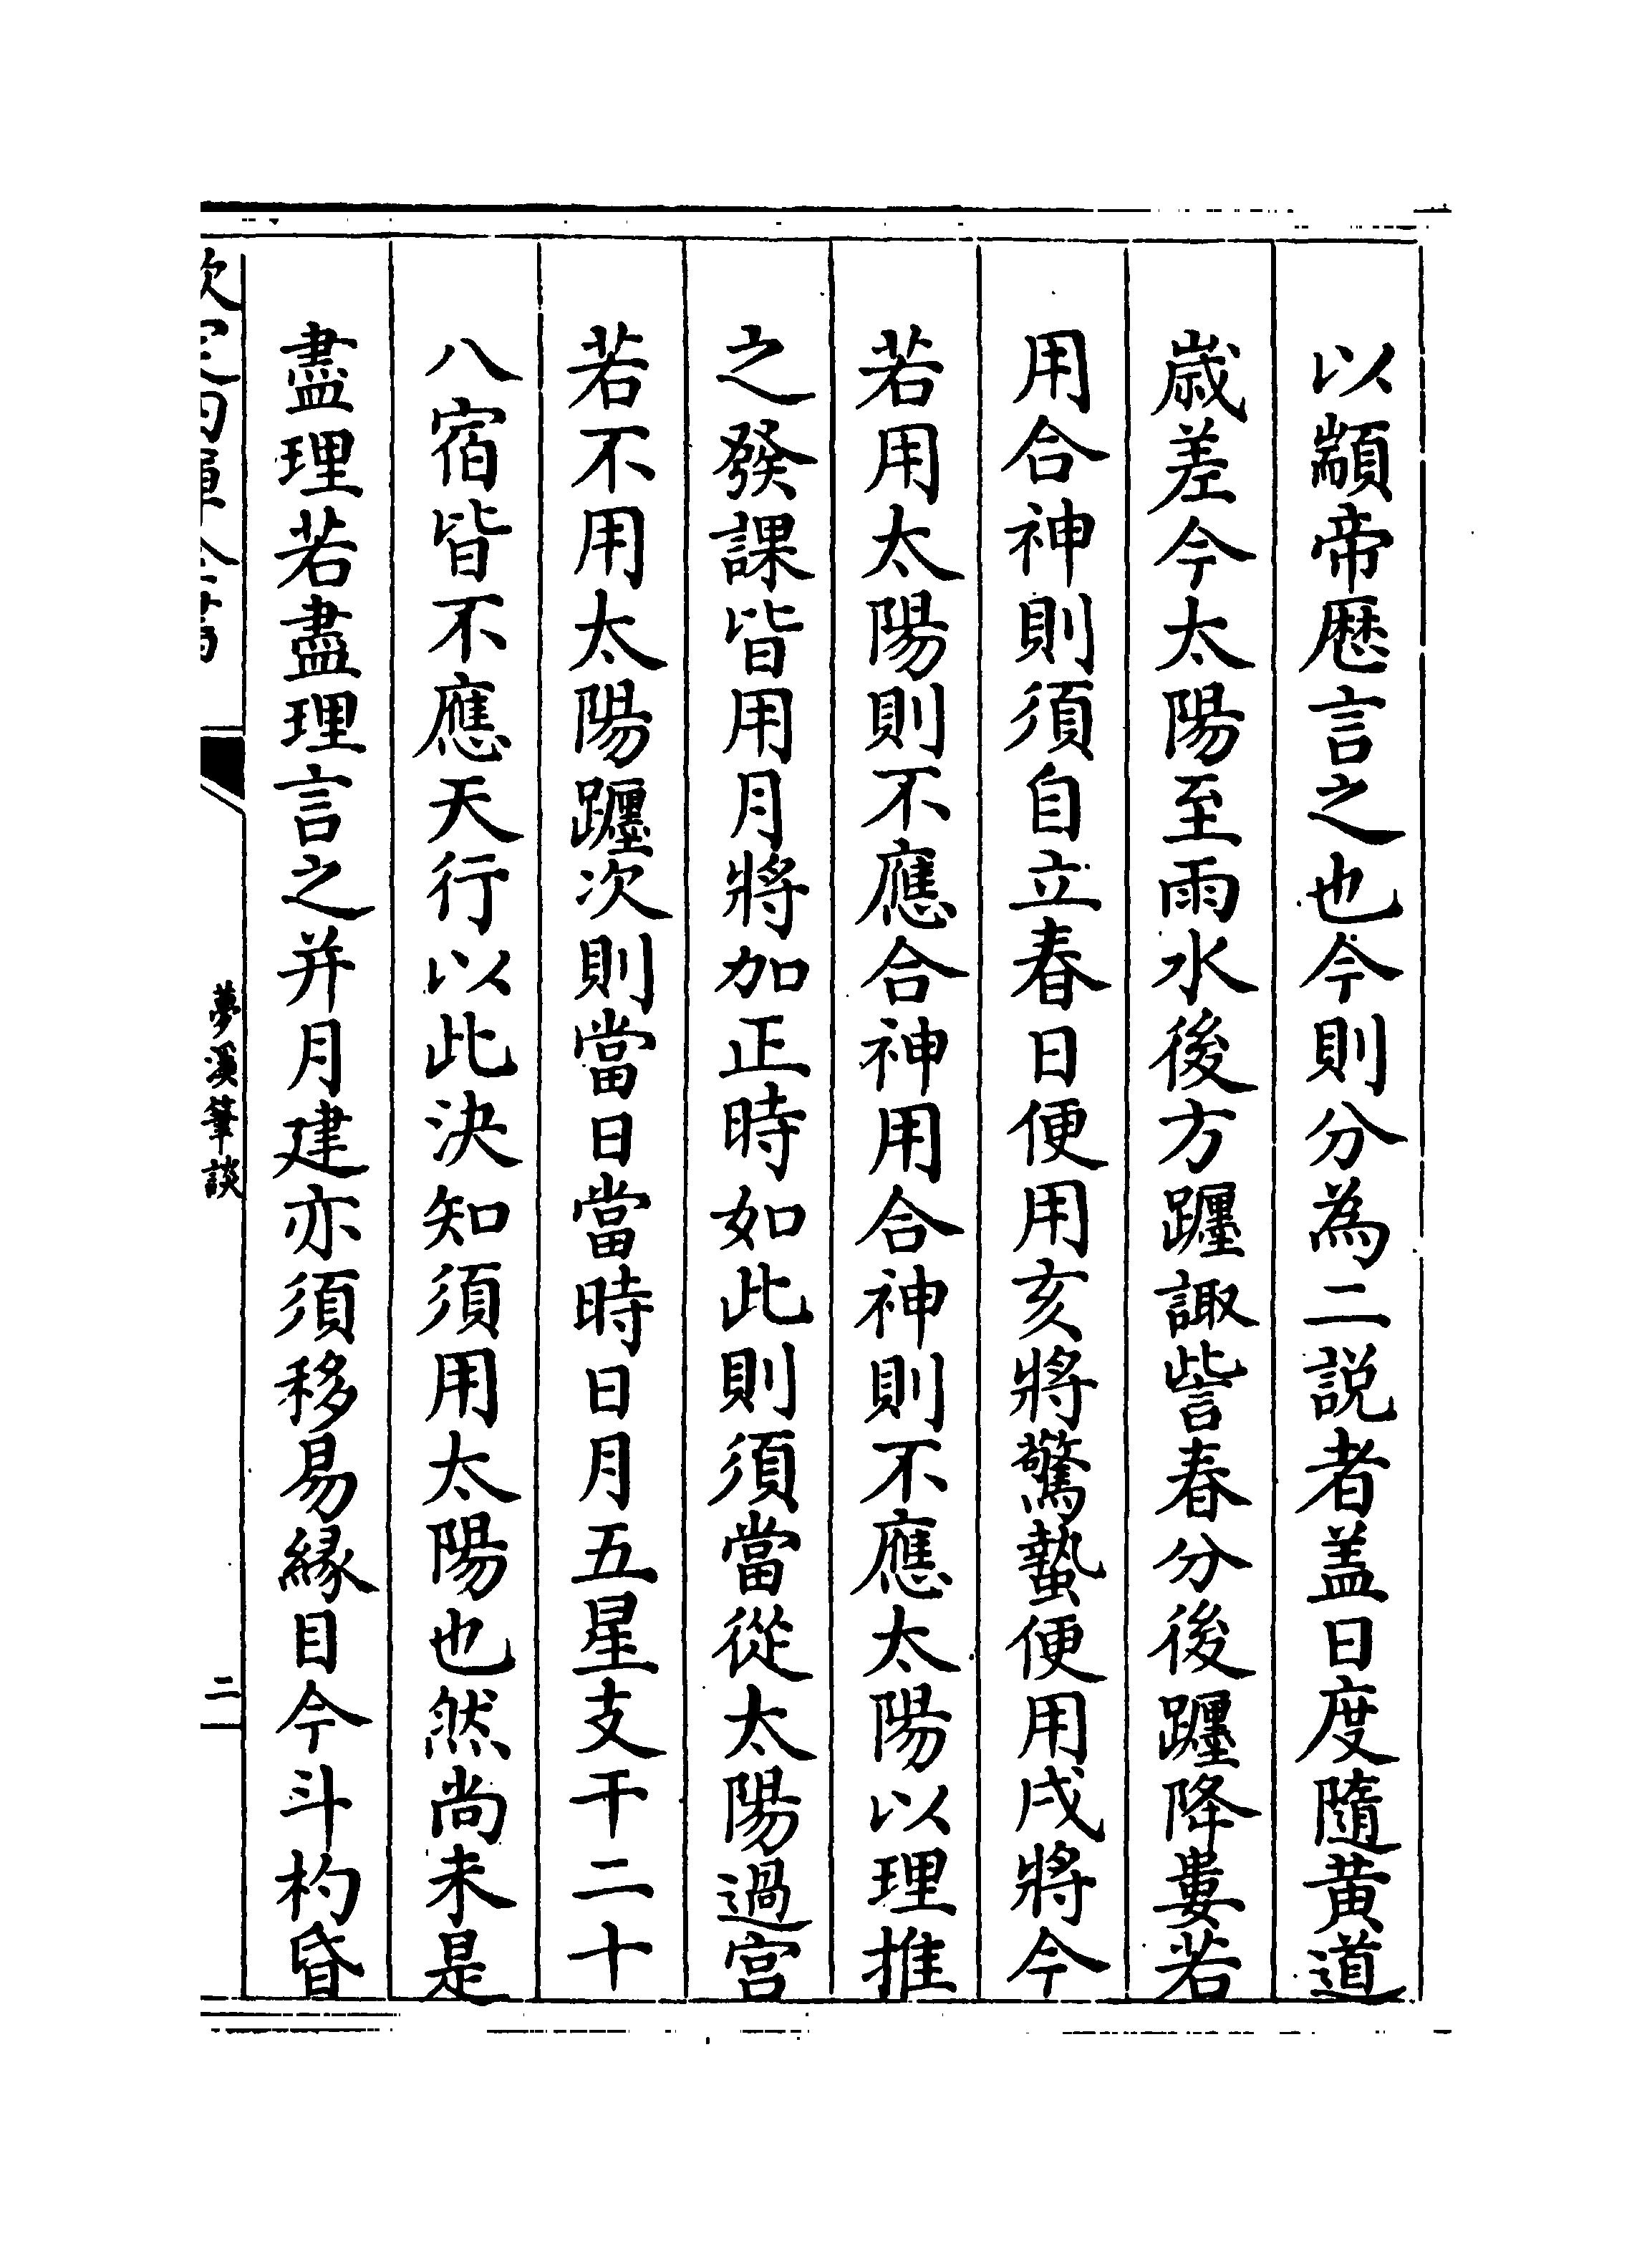 以顓帝厯言之也今則分為二説者盖日度隨黄道
歳差今太陽至雨水後方躔諏訾春分後躔降婁若
用合神則須自立春日便用亥將驚蟄便用戌將今
若用太陽則不應合神用合神則不應太陽以理推
之發課皆用月將加正時如此則須當從太陽過宫
若不用太陽躔次則當日當時日月五星支干二十
八宿皆不應天行以此決知須用太陽也然尚未是
盡理若盡理言之并月建亦須移易縁目今斗杓昏
夢溪筆談
二